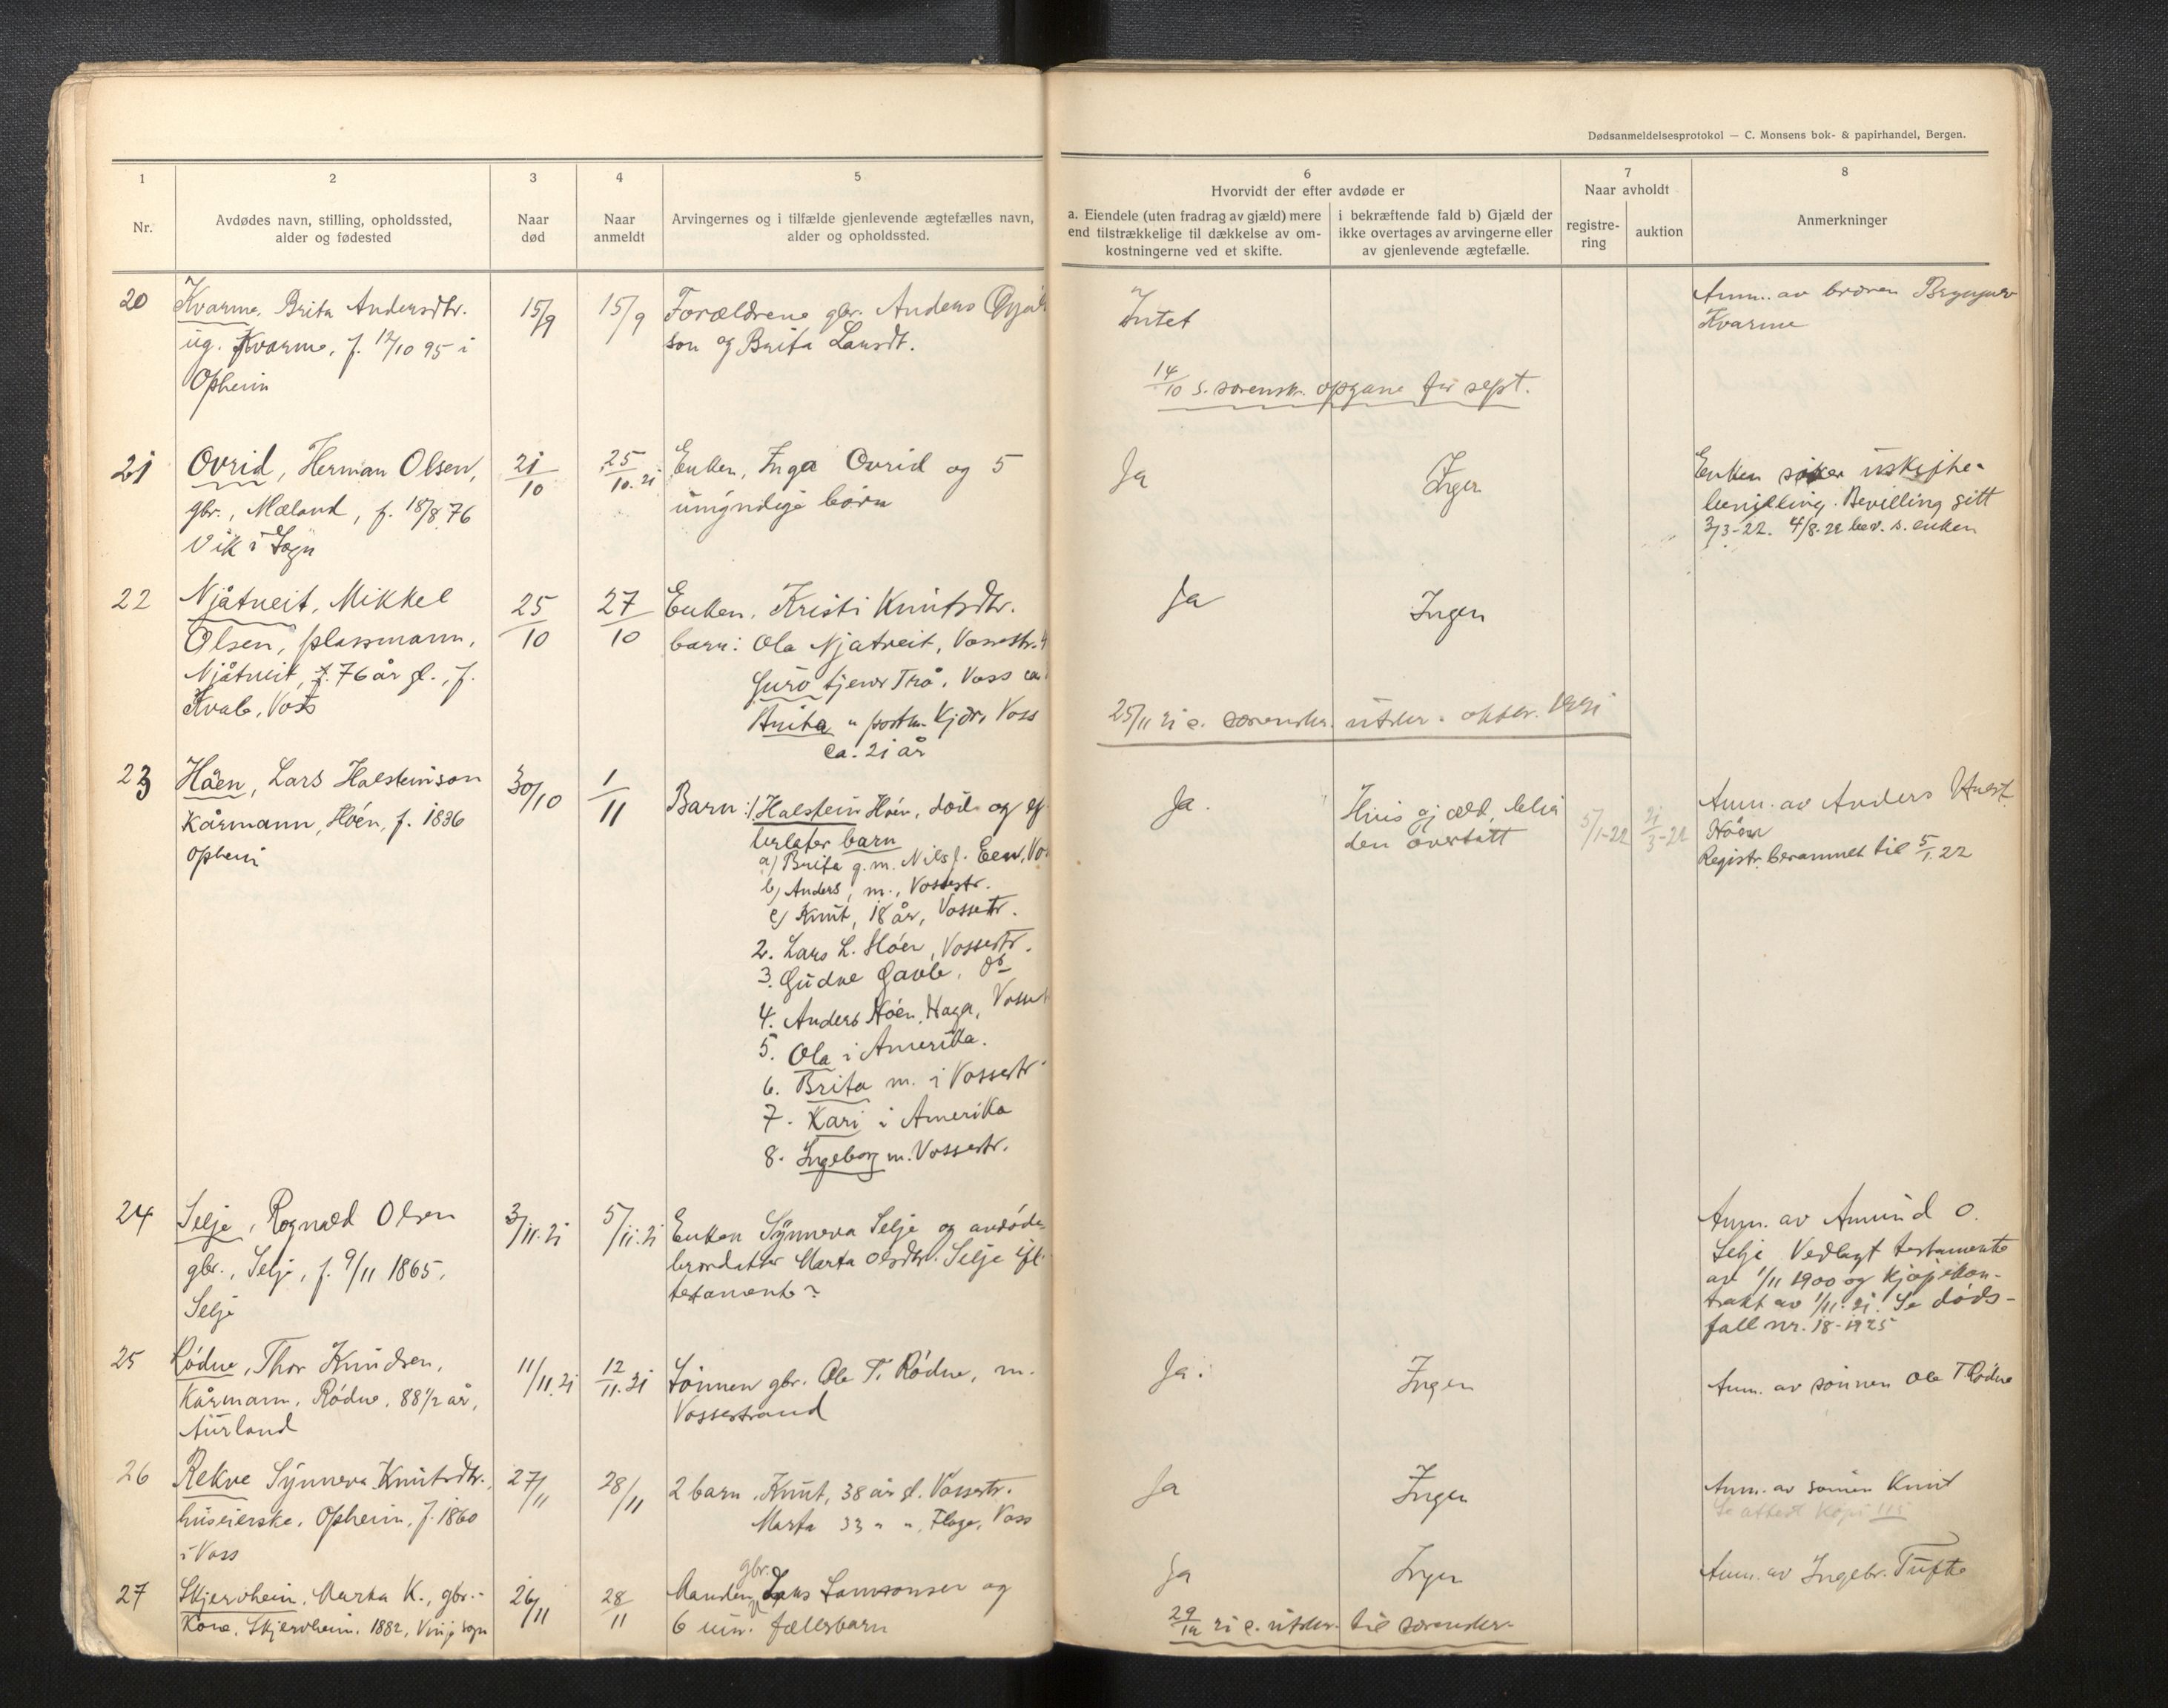 Dødsanmeldelsesprotokol — C. Monsens bok- & papirhandel, Bergen.
1
Nr.
2
Avdødes navn, stilling, opholdssted,
alder og fødested
3
Naar
død
4
Naar
anmeldt
5
Arvingernes og i tilfælde gjenlevende ægtefælles navn,
alder og opholdssted.
6
Hvorvidt der efter avdøde er
a. Eiendele (uten fradrag av gjæld) mere
end tilstrækkelige til dækkelse av om-
kostningerne ved et skifte.
i bekræftende fald b) Gjæld der
ikke overtages av arvingerne eller
av gjenlevende ægtefælle.
7
Naar avholdt
registre-
ring
auktion
8
Anmerkninger
20
Kvarme, Brita Andersdtr.
ug. Kvarme, f. 12/10 95 i
Opheim
15/9
15/9
Forældrene gbr. Anders
son og Brita Larsdt.
Intet
14/10 s. sorensk. opgave for sept.
Anm. av broren Brynjulv
Kvarme
21
Ovrid, Herman Olsen,
gbr., Mæland, f. 18/8 76
Vik i Sogn
21/10
25/10. 21
Enken, Inga Ovrid og 5
umyndige børn
Ja
Ingen
Enken søker uskifte-
bevilling. Bevilling gitt
3/3-22. 4/8-22 bev. s. enken
22
Njåtveit, Mikkel
Olsen, plassmann,
Njåtveit, f. 76 år gl., f.
Kvale, Voss
25/10
27/10
Enken, Kristi Knutsdtr.
barn: Ola Njatveit, Vossestr.
Guro tjener Trå, Voss ca
Anita " postm. Kjør, Voss
ca. 21 år
Ja
Ingen
25/11 21 s. sorenskr. utskr. oktbr. 1921
23
Håen, Lars Halsteinson
Kårmann, Høen, f. 1836
Opheim
30/10
1/11
Barn: 1/ Halstein Høen, død og ef
terlater barn
a/ Brita g.m. Nils J. Een, Vo
b/ Anders, m., Vossestr.
c/ Knut, 18 år, Vossestr.
2. Lars L. Høen, Vossestr.
3. Gudve Gavle, Do
4. Anders Høen, Haga, Vosse
5. Ola i Amerika.
6. Brita m. i Vossestr.
7. Kari i Amerika
8. Ingeborg m. Vossestr.
Ja.
Hvis gjæld, blir
den overtatt
5/1-22
21/3-22
Anm. av Anders
Høen
Registr. berammet til 5/1. 22
24
Selje, Rognald Olsen
gbr., Selje, f. 9/11 1865,
Selje
3/11. 21
5/11. 21
Enken Synneva Selje og avdøde
brordatter Marta Olsdtr. Selje ifl.
testamente?
Anm. av Amund O.
Selje. Vedlagt testamente
av 1/11 1900 og kjøpekon-
trakt av 1/11. 21. Se døds-
fall nr. 18-1925
25
Rødne, Thor Knudsen,
Kårmann, Rødne, 88 1/2 år,
Aurland
11/11. 21
12/11. 21
Sønnen gbr. Ole T. Rødne, m.
Vossestrand
Ja.
Ingen
Anm. av sønnen Ole T. Rødne
26
Rekve Synneva Knutsdtr.,
huseierske, Opheim, f. 1860
i Voss
27/11
28/11
2 barn, Knut, 38 år gl. Vossestr.
Marta 33 " ", Flage, Voss
Ja
Ingen
Anm. av sønnen Knut
Se attest kopi 115
27
Skjervheim, Marta K., gbr.-
Kone, Skjervheim, 1882, Vinje sogn
26/11
28/11
gbr.
Manden, Lars Samsonsen og
6 um. fællesbarn
Ja
Ingen
29/12 21 s. utskr. til sorenskr.
Anm. av Ingebr. Tufte